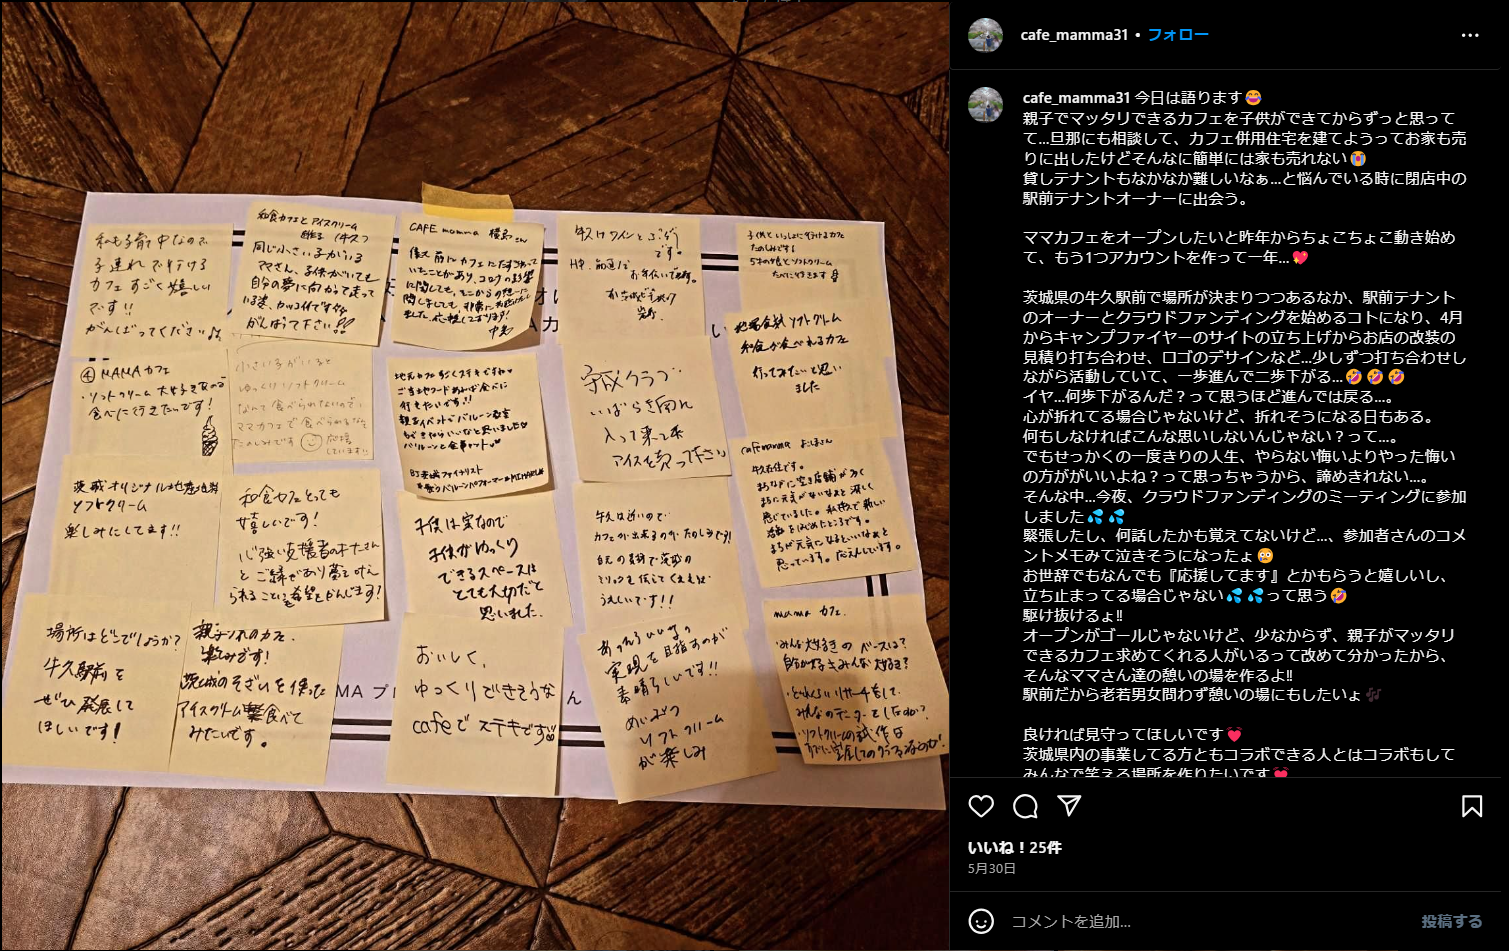 私も子育て中なので
子連れで行ける
カフェすごく嬉しい
です!!
がんばってくださいね
和食カフェとアイスクリーム
同じ小さい子がいる
ママさん、子供がいても
自分の夢に向かって走って
いる姿、カッコイイです
がんばって下さい!!
CAFE mamma 横島さん
以前カフェに
いたことがあり、コロナの影響
応援しております!
牛久はワインとぶどう
です。
子供といっしょに行けるカフェ
たのしみです!
5才の娘とソフトクリーム
たべに行きます
地場食材ソフトクリーム
和食が食べれるカフェ
行ってみたいと思い
ました
④ MAMAカフェ
・ソフトクリーム大好きなので
食べに行きたいです!
小さい子がいると
ゆっくりソフトクリーム
なんて食べられないので
ママカフェで食べられるなんて
たのしみです 応援
しています!!
地元カフェすごくステキですね♥
ご当地フードあれば食べに
行きたいです!!
親子イベントでバルーン教室
バルーンと食事セット♥
守成クラブ
いばらき南に
入って来て
アイスを売って下さい
cafe mamma よこしまさん
牛久在住です。
まちなかに空き店舗が多く
まちに元気がないなぁと淋しく
感じていました。
まちが元気になるといいなぁと
思っています。応えんしています。
茨城オリジナル地産地消
ソフトクリーム
楽しみにしてます!!
和食カフェとっても
嬉しいです!
心強い支援者のオーナーさん
とご縁があり夢を叶え
られることに希望をかんじます!
子供は宝なので
子供がゆっくり
できるスペースは
とても大切だと
思いました.
牛久は近いので
カフェが出来るのがたのしみです!
地元の素材で茨城の
ミリョクを伝えてくれれば
うれしいです!!
場所はどこでしょうか?
牛久駅前を
ぜひ発展して
ほしいです!
親子づれのカフェ.
楽しみです!
茨城のそざいを使った
アイスクリーム 食べて
みたいです。
おいしく、
ゆっくりできそうな
cafeで ステキです
実現を目指すのが
素晴らしいです!!
ソフトクリーム
が楽しみ
mama カフェ.
・みんな大好きのベースは?
自分が好き≠みんな大好き?
・どれくらいリサーチをして.
みんなのデーターをとしたのか?
・ソフトクリームの試作は
MAプ
ん
cafe_mamma31 • フォロー
cafe_mamma31 今日は語ります😂
親子でマッタリできるカフェを子供ができてからずっと思ってて...旦那にも相談して、カフェ併用住宅を建てようってお家も売りに出したけどそんなに簡単には家も売れない😭
貸しテナントもなかなか難しいなぁ...と悩んでいる時に閉店中の駅前テナントオーナーに出会う。
ママカフェをオープンしたいと昨年からちょこちょこ動き始めて、もう1つアカウントを作って一年...💖
茨城県の牛久駅前で場所が決まりつつあるなか、駅前テナントのオーナーとクラウドファンディングを始めるコトになり、4月からキャンプファイヤーのサイトの立ち上げからお店の改装の見積り打ち合わせ、ロゴのデサインなど...少しずつ打ち合わせしながら活動していて、一歩進んで二歩下がる...🤣🤣🤣
イヤ...何歩下がるんだ？って思うほど進んでは戻る...。
心が折れてる場合じゃないけど、折れそうになる日もある。
何もしなければこんな思いしないんじゃない？って...。
でもせっかくの一度きりの人生、やらない悔いよりやった悔いの方ががいいよね？って思っちゃうから、諦めきれない...。
そんな中...今夜、クラウドファンディングのミーティングに参加しました💦💦
緊張したし、何話したかも覚えてないけど...、参加者さんのコメントメモみて泣きそうになったょ😳
お世辞でもなんでも『応援してます』とかもらうと嬉しいし、立ち止まってる場合じゃない💦💦って思う🤣
駆け抜けるょ‼
オープンがゴールじゃないけど、少なからず、親子がマッタリできるカフェ求めてくれる人がいるって改めて分かったから、そんなママさん達の憩いの場を作るよ‼
駅前だから老若男女問わず憩いの場にもしたいょ🎶
良ければ見守ってほしいです💓
茨城県内の事業してる方ともコラボできる人とはコラボもしてみんなで笑える場所を作りたいです💓
いいね！25件
5月30日
コメントを追加...
投稿する